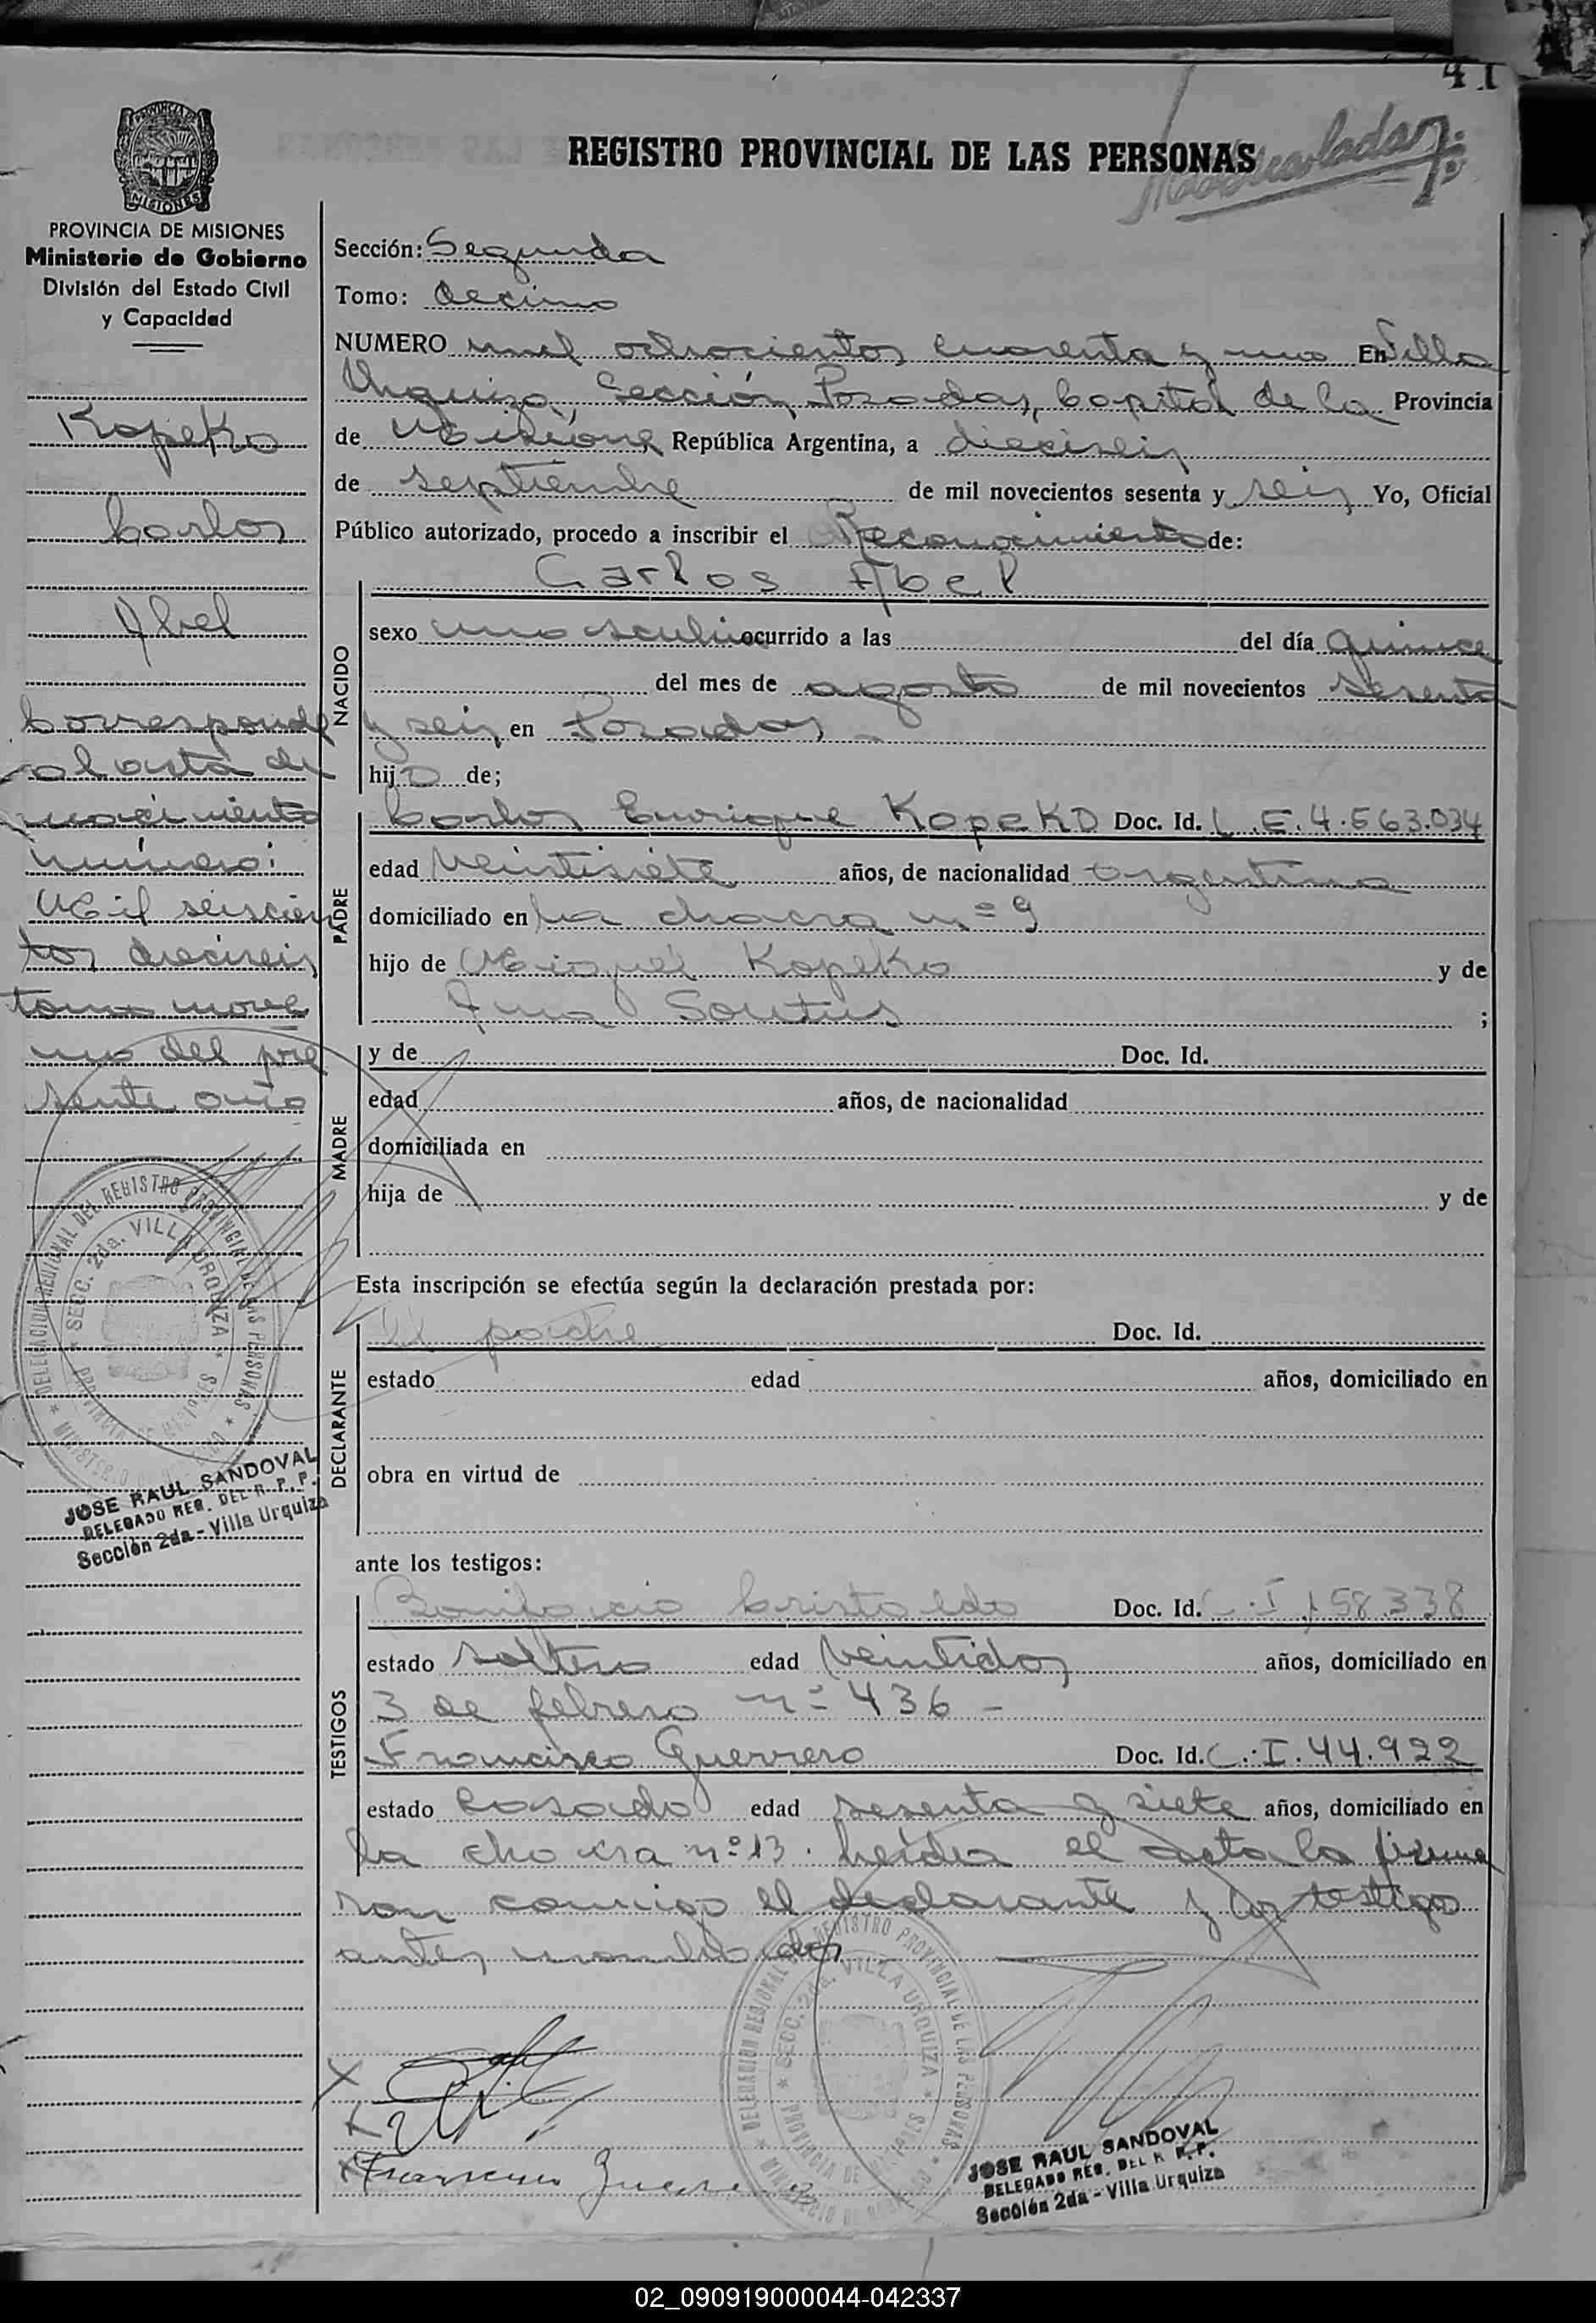 41
Matriculado
REGISTRO PROVINCIAL DE LAS PERSONAS
PROVINCIA DE MISIONES
MISIONES
PROVINCIA DE MISIONES
Ministerio de Gobierno
División del Estado Civil
y Capacidad
Kopeko
Carlos
Abel
Corresponde
al acta de
nacimiento
número:
Mil seiscien
tos dieciseis
tomo nove
no del pre
sente año
DELEGACION REGIONAL DEL REGISTRO PROVINCIAL DE LAS PERSONAS
SECC. 2da. VILLA URQUIZA
PROVINCIA DE MISIONES
MINISTERIO DE GOBIERNO
JOSE RAUL SANDOVAL
DELEGADO REG. DEL R. P. P.
Sección 2da - Villa Urquiza
Sección: Segunda
Tomo: decimo
NUMERO mil ochocientos cuarenta y uno En Villa
Urquiza, Sección Posadas, Capital de la Provincia
de Misiones República Argentina, a dieciseis
de septiembre de mil novecientos sesenta y seis Yo, Oficial
Público autorizado, procedo a inscribir el Reconocimiento de:
NACIDO
Carlos Abel
sexo masculino ocurrido a las del día quince
del mes de agosto de mil novecientos sesenta
y seis en Posadas
hijo de;
PADRE
Carlos Enrique Kopeko Doc. Id. L.E. 4.563.034
edad veintisiete años, de nacionalidad argentina
domiciliado en la chacra nº 9
hijo de Miguel Kopeko y de
Ana Soutus ;
MADRE
y de Doc. Id.
edad años, de nacionalidad
domiciliada en
hija de y de
Esta inscripción se efectúa según la declaración prestada por:
DECLARANTE
el padre Doc. Id.
estado edad años, domiciliado en
obra en virtud de
ante los testigos:
TESTIGOS
Bonifacio Cristaldo Doc. Id. C.I. 158.338
estado soltero edad veintidos años, domiciliado en
3 de febrero nº 436 -
Francisco Guerrero Doc. Id. C.I. 44.922
estado casado edad sesenta y siete años, domiciliado en
la chacra nº 13. leída el acta la firma
ron conmigo el declarante y los testigos
antes nombrados
DELEGACION REGIONAL DEL REGISTRO PROVINCIAL DE LAS PERSONAS
SECC. 2da. VILLA URQUIZA
PROVINCIA DE MISIONES
MINISTERIO DE GOBIERNO
Francisco Guerrero
JOSE RAUL SANDOVAL
DELEGADO REG. DEL R. P. P.
Sección 2da - Villa Urquiza
02_090919000044-042337